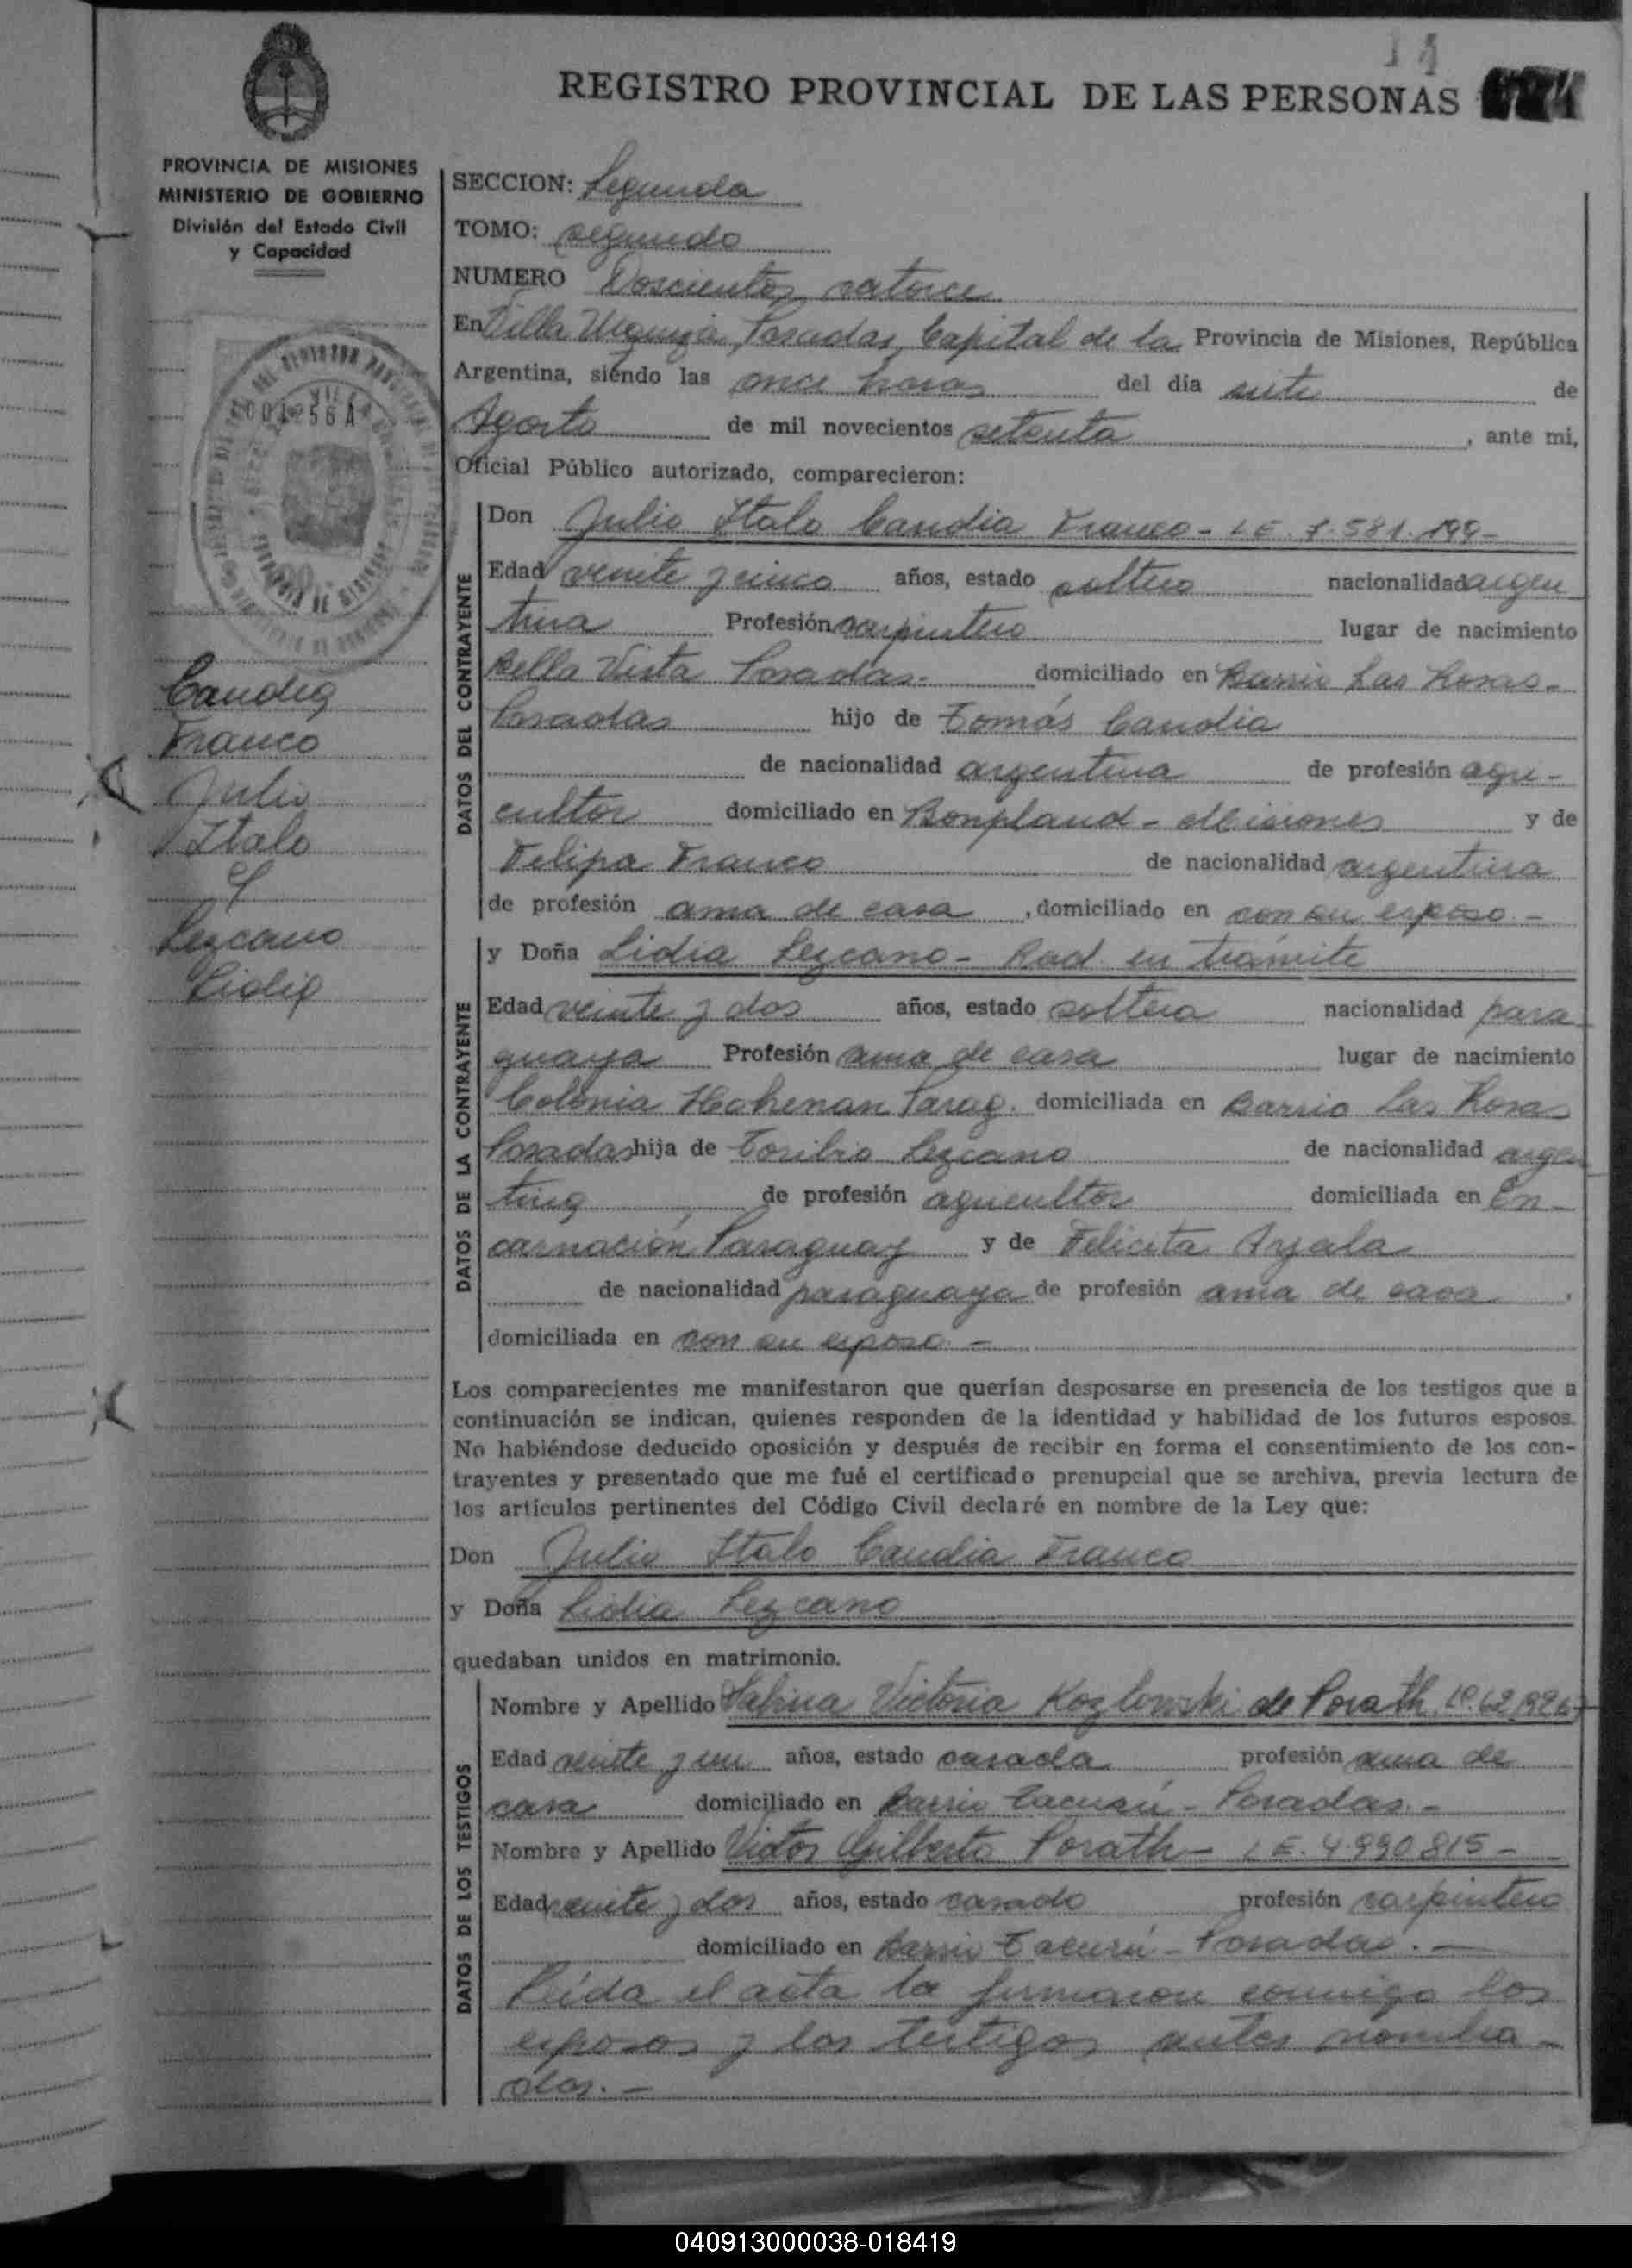 14
REGISTRO PROVINCIAL DE LAS PERSONAS
PROVINCIA DE MISIONES
MINISTERIO DE GOBIERNO
División del Estado Civil
y Capacidad
SECCION: Segunda
TOMO: segundo
NUMERO Doscientos catorce
En Villa Urquiza, Posadas, Capital de la Provincia de Misiones, República
Argentina, siendo las once horas del día siete de
Agosto de mil novecientos setenta, ante mi,
Oficial Público autorizado, comparecieron:
Candia
Franco
Julio
Italo
y
Lezcano
Lidia
DATOS DEL CONTRAYENTE
Don Julio Italo Candia Franco - LE. 7.581.199-
Edad veinte y cinco años, estado soltero nacionalidad argen
tina Profesión carpintero lugar de nacimiento
Bella Vista Posadas.- domiciliado en Barrio Las Rosas-
Posadas hijo de Tomás Candia
de nacionalidad argentina de profesión agri-
cultor domiciliado en Bonpland - Misiones y de
Felipa Franco de nacionalidad argentina
de profesión ama de casa, domiciliado en con su esposo.-
DATOS DE LA CONTRAYENTE
y Doña Lidia Lezcano - Rad en trámite
Edad veinte y dos años, estado soltera nacionalidad para
guaya Profesión ama de casa lugar de nacimiento
Colonia Hohenan Parag. domiciliada en Barrio Las Rosas
Posadas hija de Toribio Lezcano de nacionalidad argen
tina de profesión agricultor domiciliada en En-
carnación Paraguay y de Felicita Ayala
de nacionalidad paraguaya de profesión ama de casa.
domiciliada en con su esposo.-
Los comparecientes me manifestaron que querían desposarse en presencia de los testigos que a
continuación se indican, quienes responden de la identidad y habilidad de los futuros esposos.
No habiéndose deducido oposición y después de recibir en forma el consentimiento de los con-
trayentes y presentado que me fué el certificado prenupcial que se archiva, previa lectura de
los artículos pertinentes del Código Civil declaré en nombre de la Ley que:
Don Julio Italo Candia Franco
y Doña Lidia Lezcano
quedaban unidos en matrimonio.
DATOS DE LOS TESTIGOS
Nombre y Apellido Victoria Kozlowski de Porath
Edad veinte y un años, estado casada profesión ama de
casa domiciliado en Barrio Tacurú - Posadas.-
Nombre y Apellido Victor Gilberto Porath - LE. 4.990.815-
Edad veinte y dos años, estado casado profesión carpintero
domiciliado en Barrio Tacurú - Posadas.-
Leída el acta la firmaron conmigo los
esposos y los testigos antes nombra-
dos.-
040913000038-018419